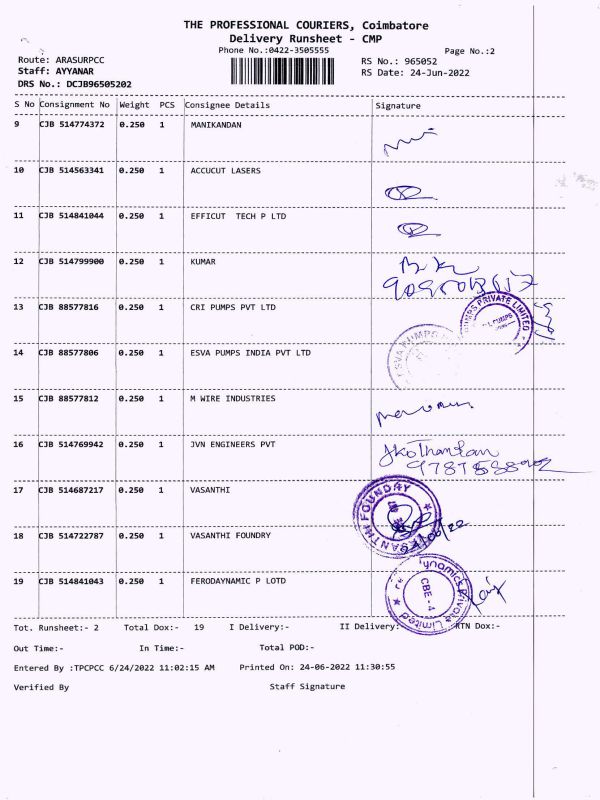 THE PROFESSIONAL COURIERS, Coimbatore
Delivery Runsheet - CMP
Phone No.:0422-3505555
Page No.:2
Route: ARASURPCC
RS No.: 965052
Staff: AYYANAR
RS Date: 24-Jun-2022
DRS No.: DCJB96505202
S No Consignment No Weight PCS Consignee Details Signature
9 CJB 514774372 0.250 1 MANIKANDAN
10 CJB 514563341 0.250 1 ACCUCUT LASERS
11 CJB 514841044 0.250 1 EFFICUT TECH P LTD
12 CJB 514799900 0.250 1 KUMAR
13 CJB 88577816 0.250 1 CRI PUMPS PVT LTD
PUMPS PRIVATE LIMITED
14 CJB 88577806 0.250 1 ESVA PUMPS INDIA PVT LTD
ESVA PUMPS
15 CJB 88577812 0.250 1 M WIRE INDUSTRIES
16 CJB 514769942 0.250 1 JVN ENGINEERS PVT
17 CJB 514687217 0.250 1 VASANTHI
VASANTHI FOUNDRY
18 CJB 514722787 0.250 1 VASANTHI FOUNDRY
19 CJB 514841043 0.250 1 FERODYNAMIC P LOTD
ynamics Private Limited
CBE - 4
Tot. Runsheet:- 2 Total Dox:- 19 I Delivery:- II Delivery:- RTN Dox:-
Out Time:- In Time:- Total POD:-
Entered By :TPCPCC 6/24/2022 11:02:15 AM Printed On: 24-06-2022 11:30:55
Verified By Staff Signature